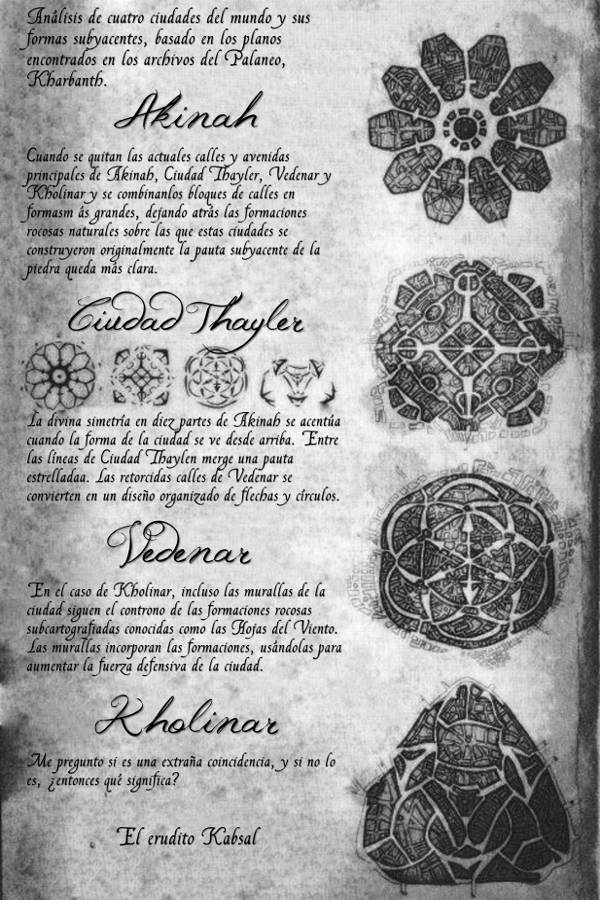 Análisis de cuatro ciudades del mundo y sus
formas subyacentes, basado en los planos
encontrados en los archivos del Palaneo,
Kharbanth.
Akinah
Cuando se quitan las actuales calles y avenidas
principales de Akinah, Ciudad Thayler, Vedenar y
Kholinar y se combinanlos bloques de calles en
formasm ás grandes, dejando atrás las formaciones
rocosas naturales sobre las que estas ciudades se
construyeron originalmente la pauta subyacente de la
piedra queda más clara.
Ciudad Thayler
La divina simetría en diez partes de Akinah se acentúa
cuando la forma de la ciudad se ve desde arriba. Entre
las líneas de Ciudad Thaylen merge una pauta
estrelladaa. Las retorcidas calles de Vedenar se
convierten en un diseño organizado de flechas y círculos.
Vedenar
En el caso de Kholinar, incluso las murallas de la
ciudad siguen el controno de las formaciones rocosas
subcartografiadas conocidas como las Hojas del Viento.
Las murallas incorporan las formaciones, usándolas para
aumentar la fuerza defensiva de la ciudad.
Kholinar
Me pregunto si es una extraña coincidencia, y si no lo
es, ¿entonces qué significa?
El erudito Kabsal